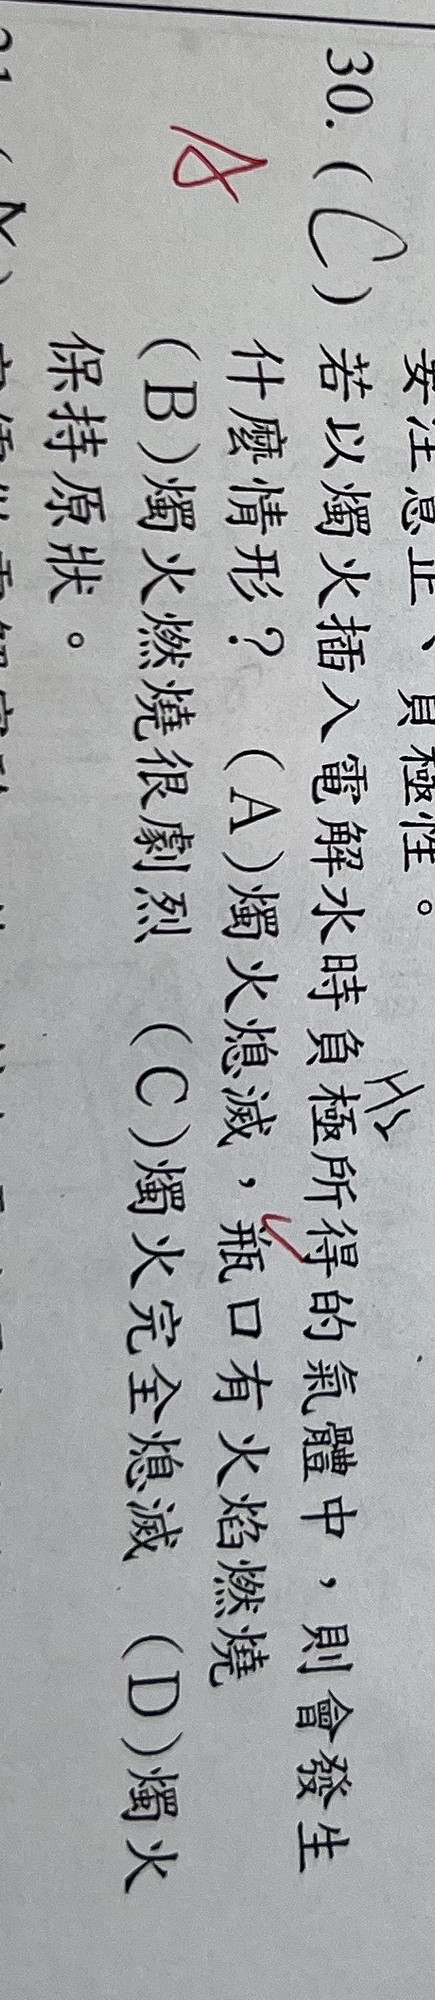 要注意正、負極性。
30.(C)若以燭火插入電解水時負極所得的氣體中，則會發生
H₂
A
什麼情形？ (A)燭火熄滅，瓶口有火焰燃燒
(B)燭火燃燒很劇烈 (C)燭火完全熄滅 (D)燭火
保持原狀。